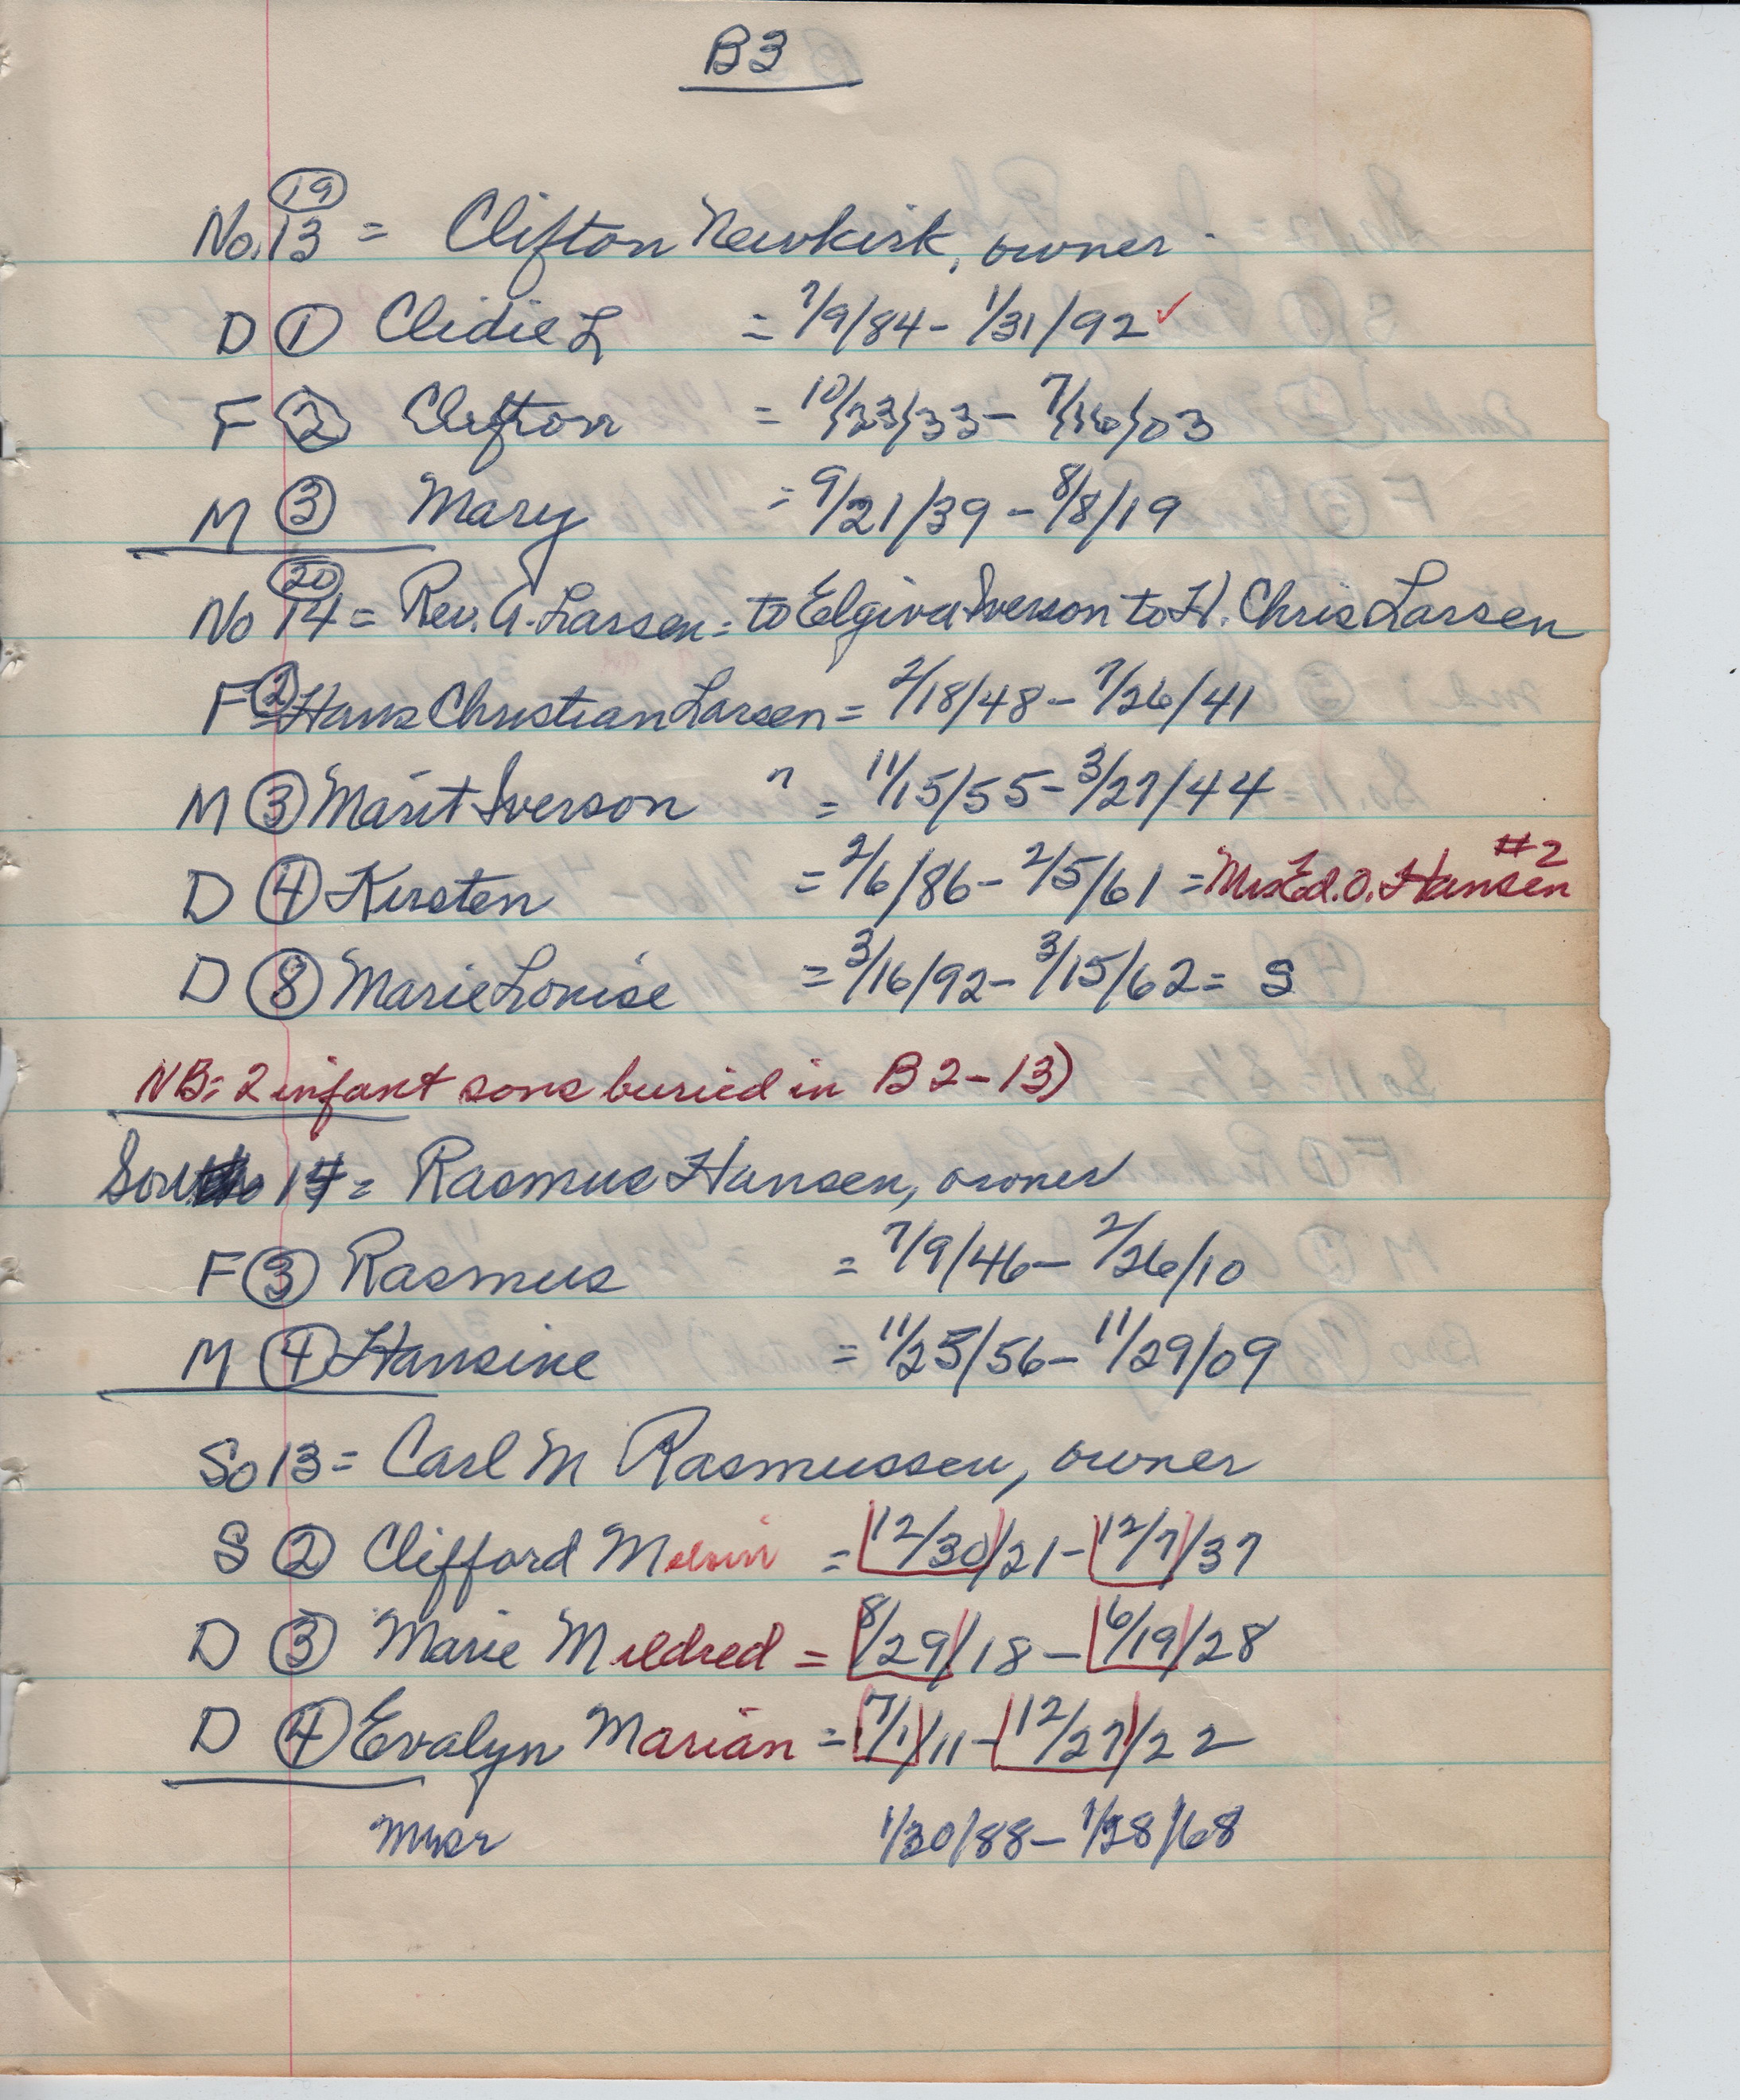 B3
19
No. 13 = Clifton Newkirk, owner
D ① Clidie L = 7/9/84 - 1/31/92 ✓
F ② Clifton = 10/23/33 - 7/16/03
M ③ Mary = 9/21/39 - 8/8/19
20
No 14 = Rev. A. Larsen = to Elgiva Iverson to H. Chris Larsen
F ② Hans Christian Larsen = 2/18/48 - 7/26/41
M ③ Marit Iverson " = 11/15/55 - 3/27/44
#2
D ④ Kirsten = 2/6/86 - 2/5/61 = Mrs Ed. O. Hansen
D ⑧ Marie Louise = 3/16/92 - 3/15/62 = S
NB = 2 infant sons buried in B2-13)
South 14 = Rasmus Hansen, owner
F ③ Rasmus = 7/9/46 - 2/26/10
M ④ Hansine = 11/25/56 - 11/29/09
So 13 = Carl M Rasmussen, owner
S ② Clifford Melvin = 12/30/21 - 12/7/37
D ③ Marie Mildred = 8/29/18 - 6/19/28
D ④ Evalyn Marian = 7/1/11 - 12/27/22
1/30/88 - 1/28/68